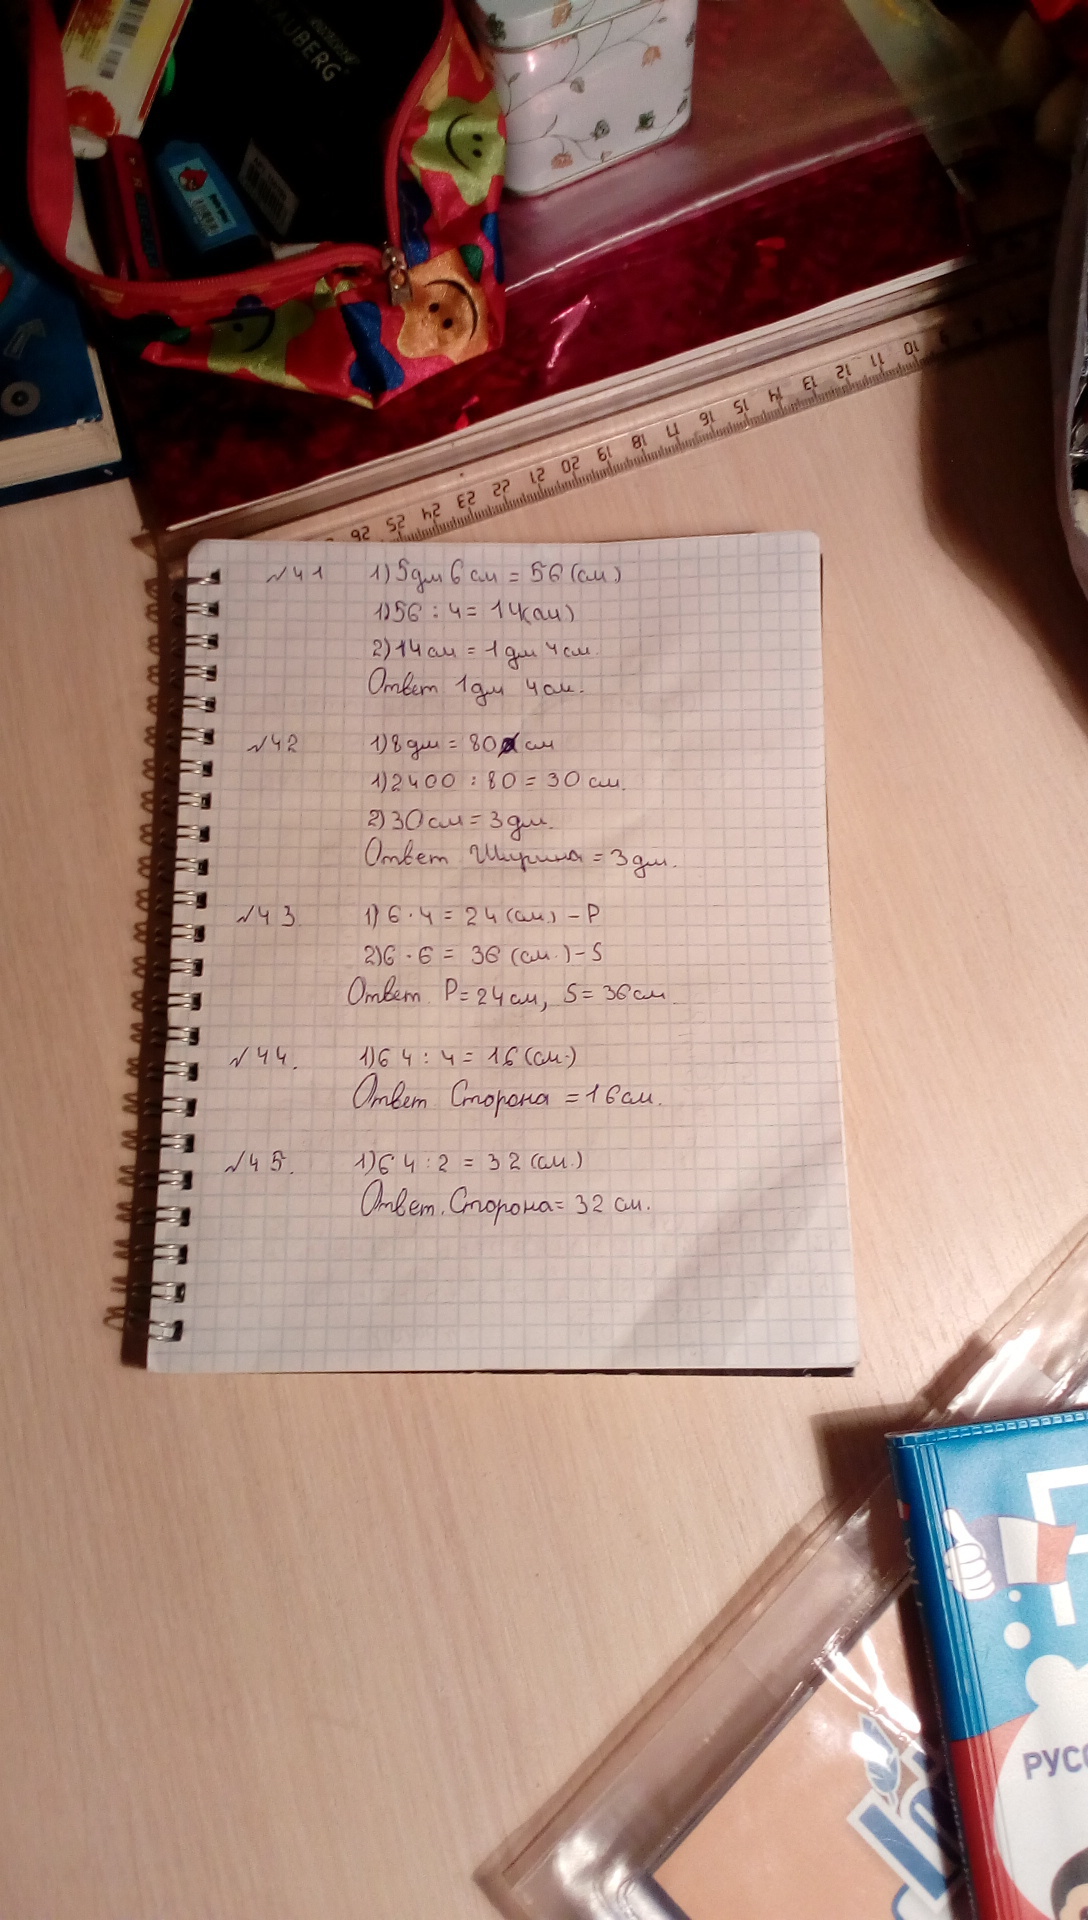 BRAUBERG
26 25 24 23 22 21 20 19 18 17 16 15 14 13 12 11 10 9
№41 1) 5дм 6см = 56 (см)
1) 56 : 4 = 14(см)
2) 14см = 1дм 4см.
Ответ 1дм 4см.
№42 1) 8дм = 80 см
1) 2400 : 80 = 30 см.
2) 30см = 3дм.
Ответ Ширина = 3дм.
№43. 1) 6 · 4 = 24 (см.) – P
2) 6 · 6 = 36 (см.) – S
Ответ. P = 24см, S = 36см.
№44. 1) 64 : 4 = 16 (см.)
Ответ Сторона = 16см.
№45. 1) 64 : 2 = 32 (см.)
Ответ. Сторона = 32 см.
РУСС